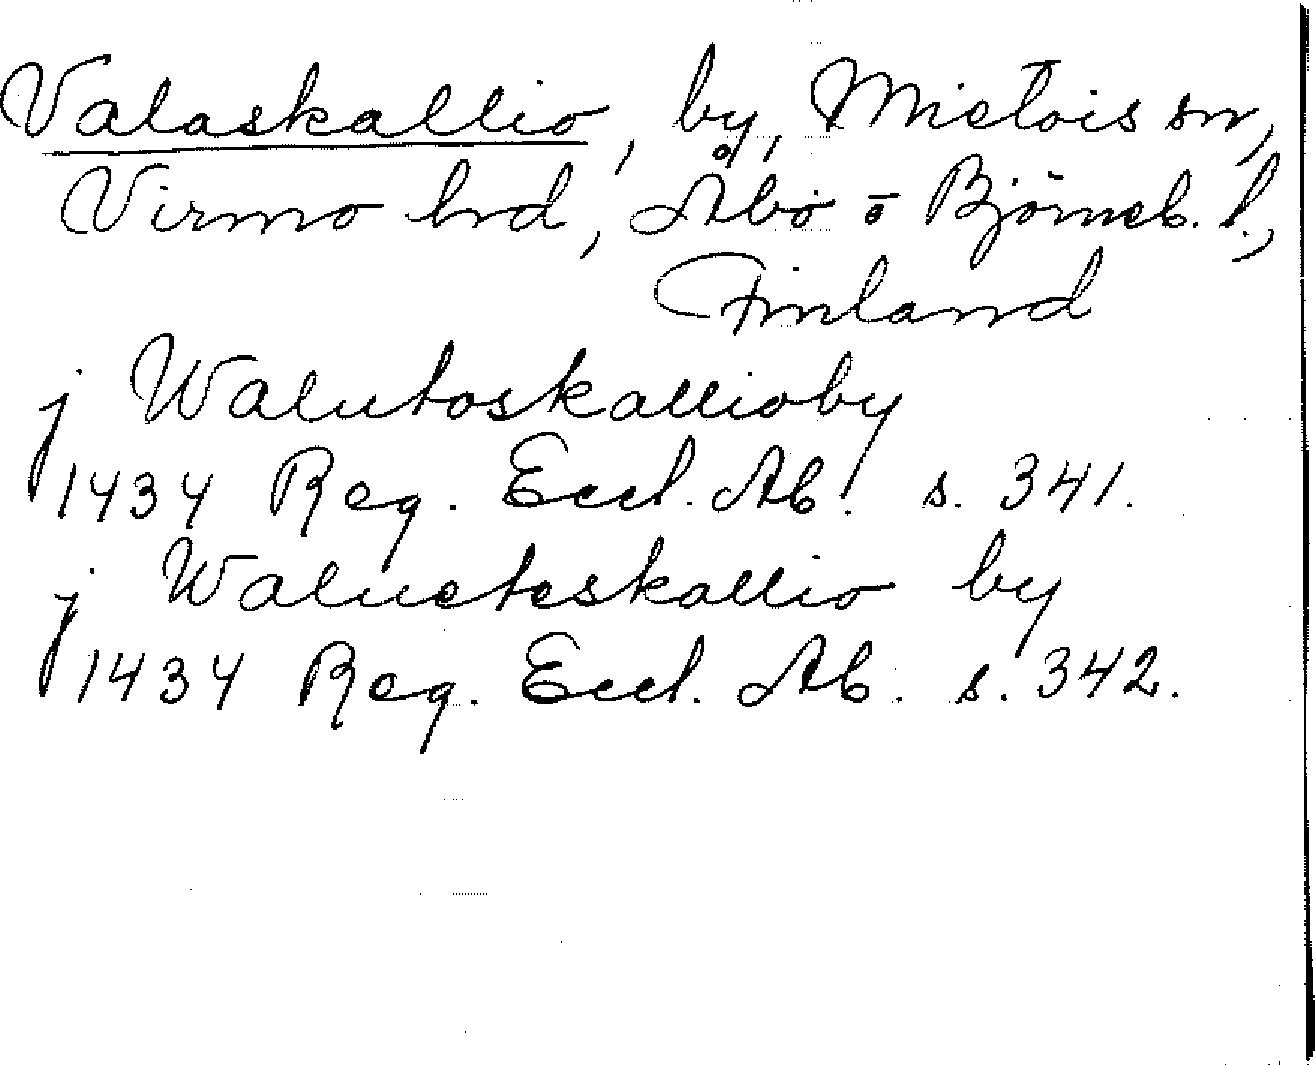 Valaskallio, by, Mietois sn,
Virmo hd, Åbo o Björneb. l.,
Finland
j Walutoskallioby
1434 Reg. Eccl. Ab. s. 341.
j Walueteskallio by
1434 Reg. Eccl. Ab. s. 342.